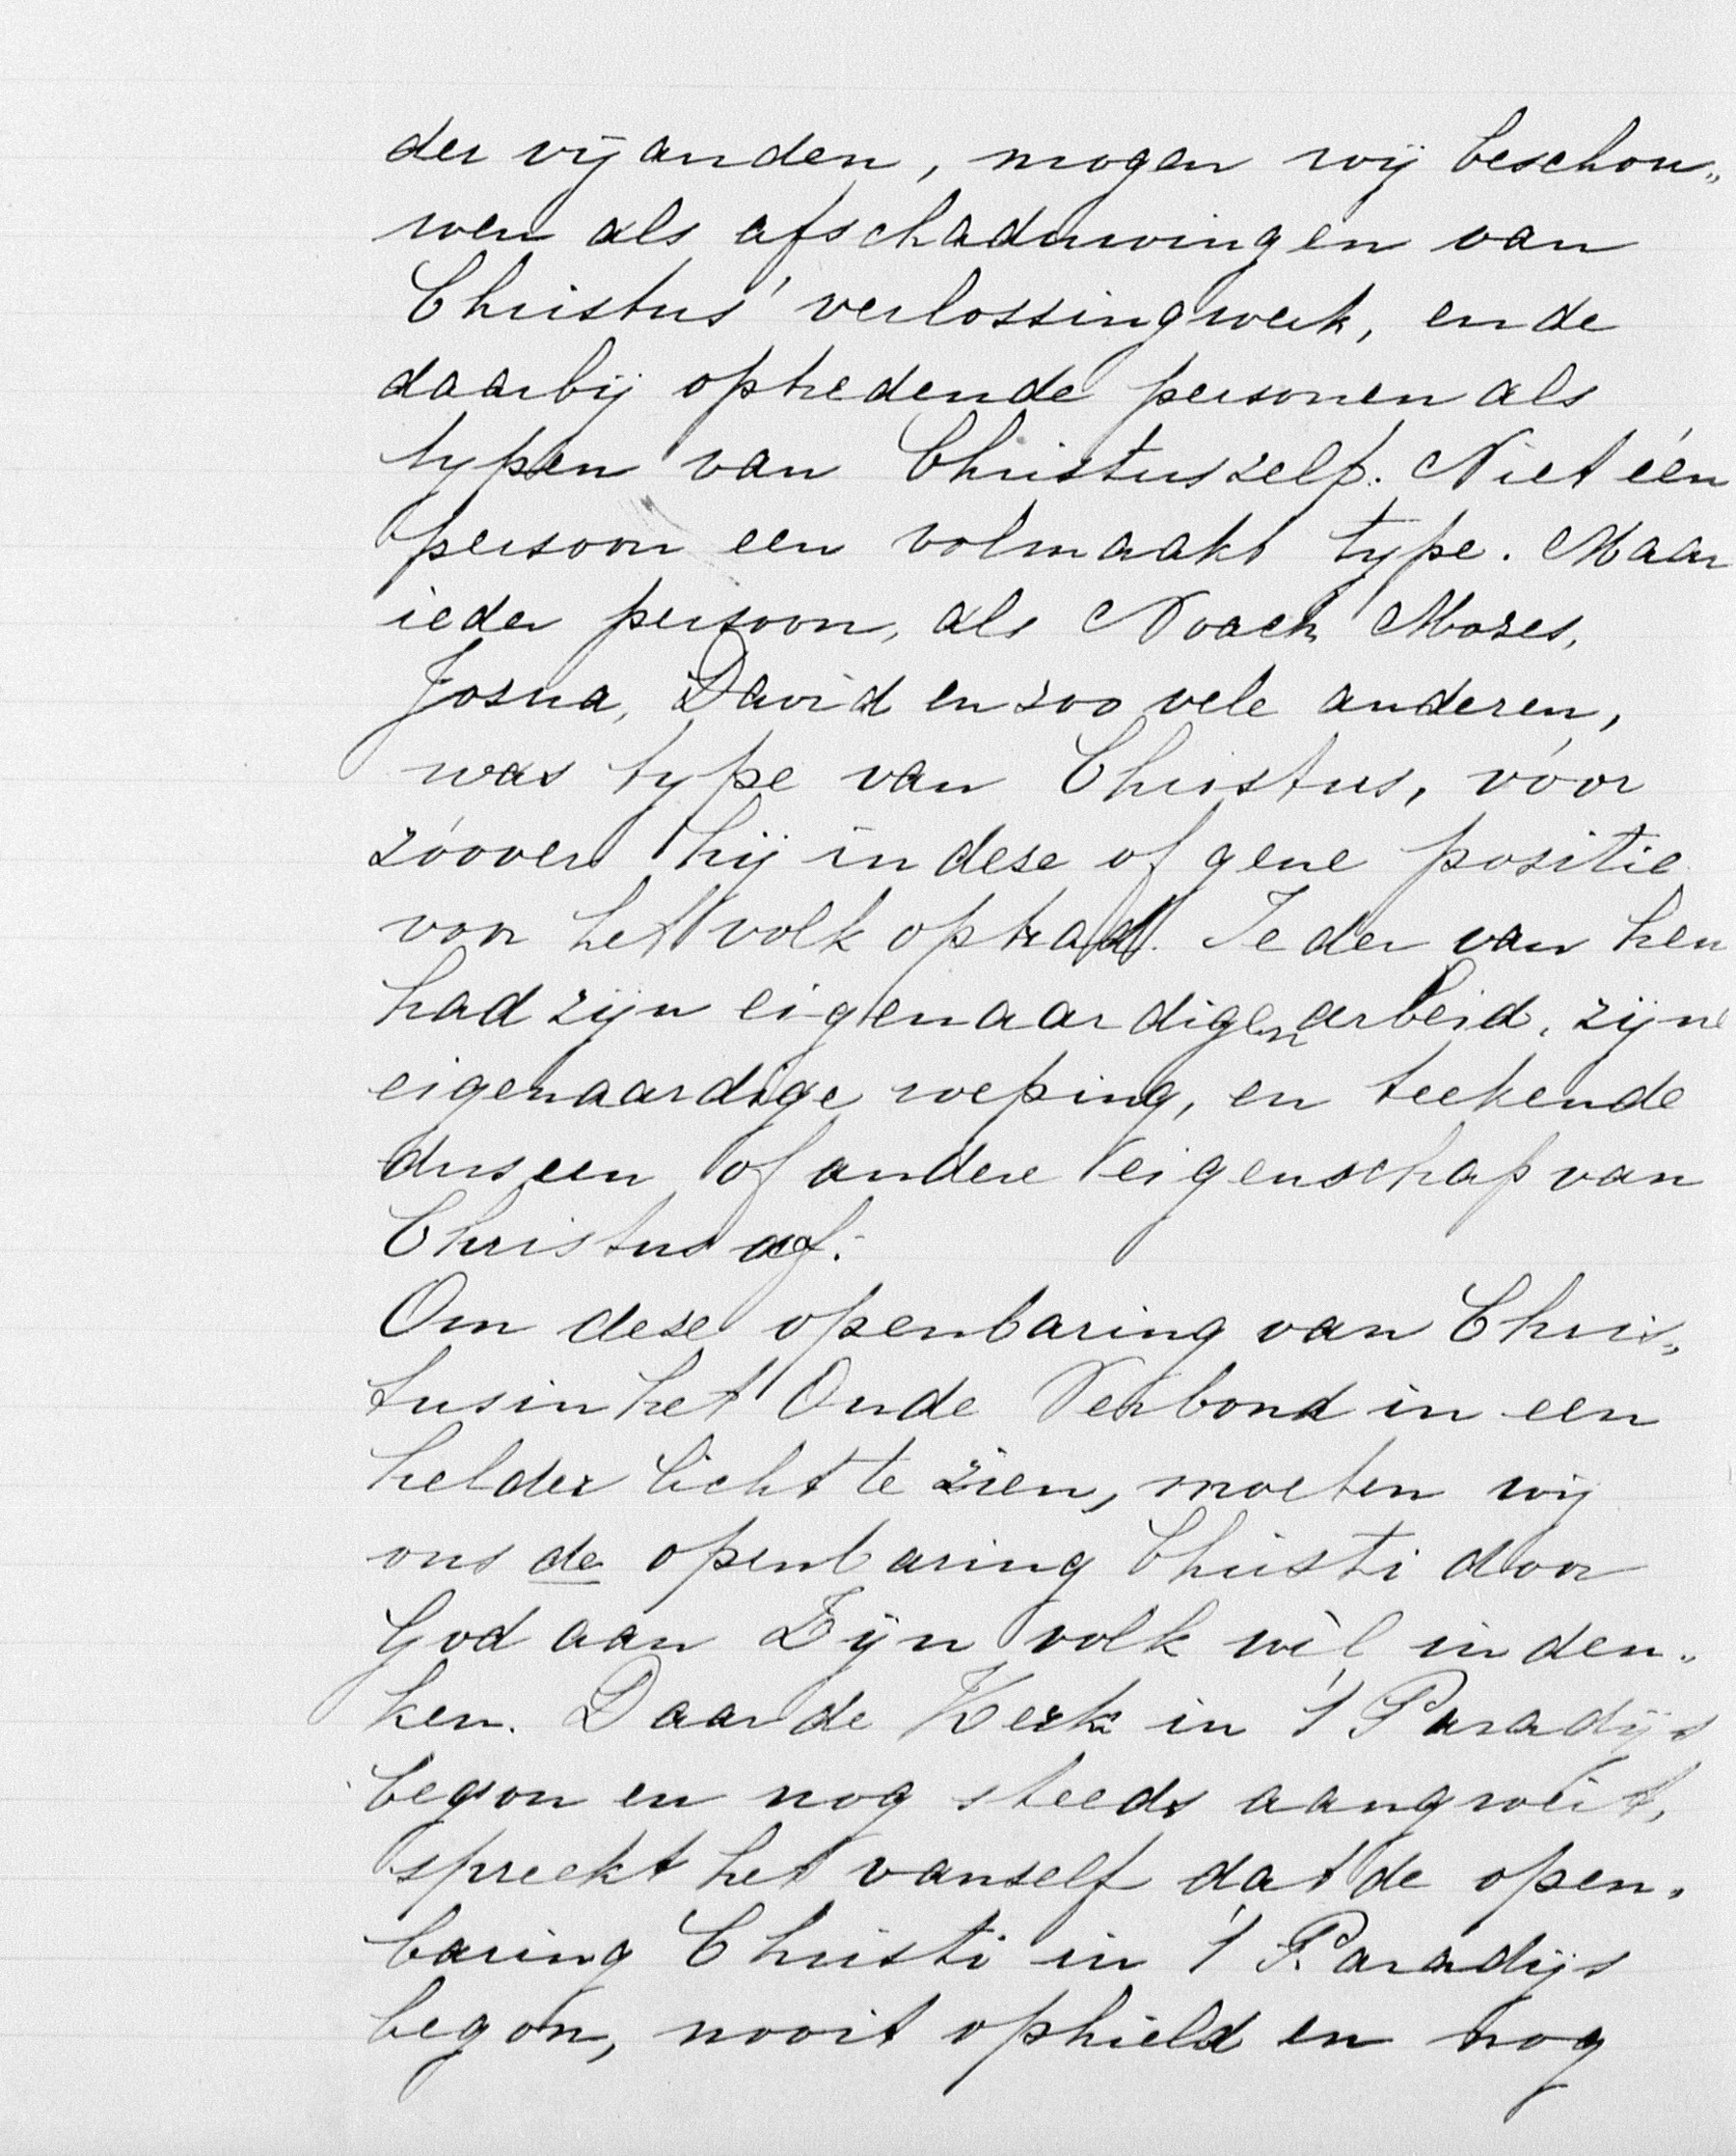 der vijanden, mogen wij beschou„
wen als afschaduwingen van
Christus' verlossingwerk, en de
daarbij optredende personen als
typen van Christus zelf. Niet één
persoon een volmaakt type. Maar
ieder persoon, als Noach, Mozes,
Josua, David en zoo vele anderen,
was type van Christus, vóor
zóover hij in deze of gene positie
voor het volk optrad. Ieder van hen
had zijn eigenaardigen arbeid, zijne
eigenaardige roeping, en teekende
dus een of andere eigenschap van
Christus af.
Om deze openbaring van Chris„
tus in het Oude Verbond in een
helder licht te zien, moeten wij
ons de openbaring Christi door
God aan Zijn volk wèl inden„
ken. Daar de Kerk in 't Paradijs
begon en nog steeds aangroeit,
spreekt het vanself dat de open„
baring Christi in 't Paradijs
begon, nooit ophield en nog